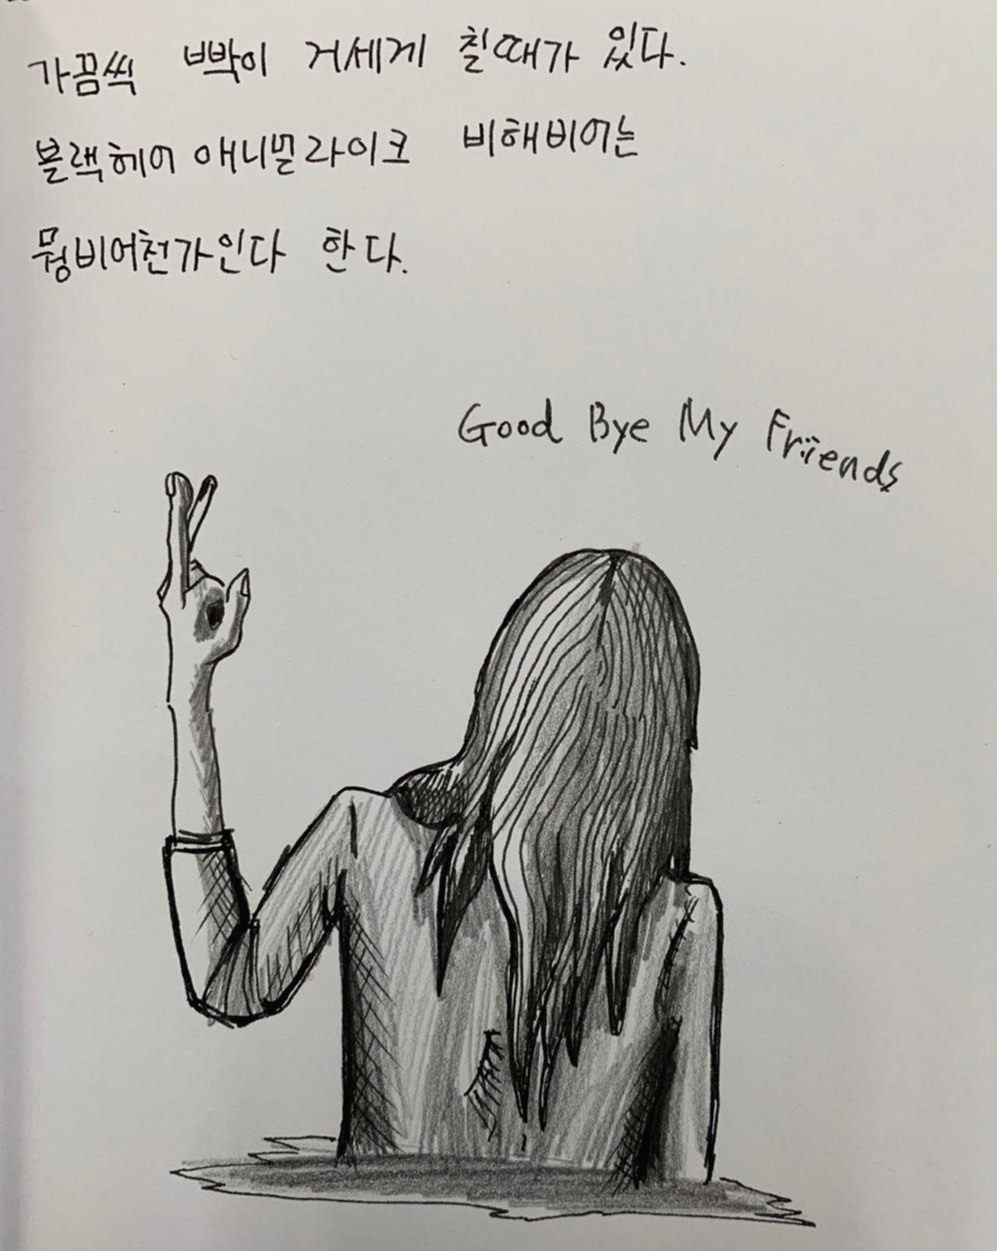 가끔씩 빡이 거세게 칠때가 있다.
블랙헤어 애니멀라이크 비해비어는
뭥비어천가인다 한다.
Good Bye My Friends